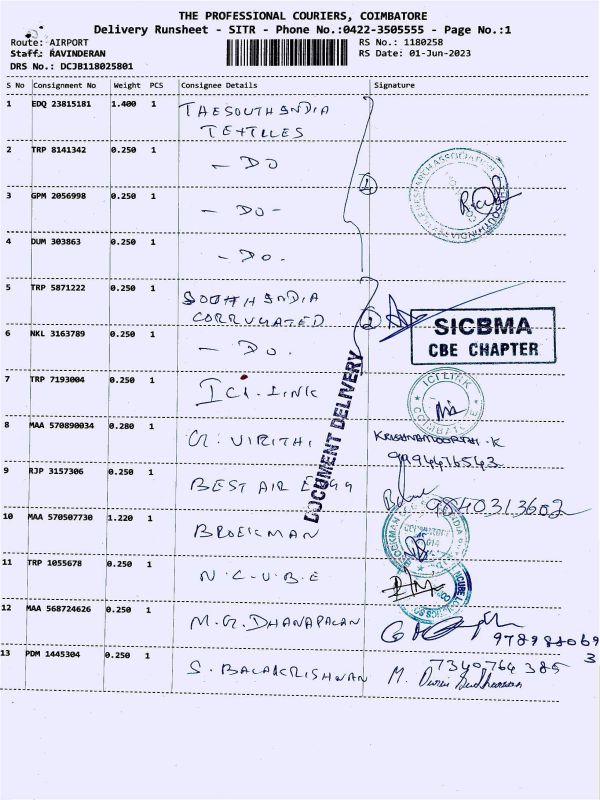 THE PROFESSIONAL COURIERS, COIMBATORE
Delivery Runsheet - SITR - Phone No.:0422-3505555 - Page No.:1
Route: AIRPORT RS No.: 1180258
Staff: RAVINDERAN RS Date: 01-Jun-2023
DRS No.: DCJB118025801
S No Consignment No Weight PCS Consignee Details Signature
1 EDQ 23815181 1.400 1 THE SOUTH INDIA
TEXTILES
2 TRP 8141342 0.250 1 - DO
3 GPM 2056998 0.250 1 - DO -
4 DUM 303863 0.250 1 - DO.
5 TRP 5871222 0.250 1 SOUTH INDIA
CORRUGATED
SICBMA
CBE CHAPTER
6 NKL 3163789 0.250 1 - DO.
7 TRP 7193004 0.250 1 ICI.LINK
ICI LINK
COIMBATORE
DOCUMENT DELIVERY
8 MAA 570890034 0.280 1 G. VIRITHI KRISHNAMOORTHI.K
9994476543
9 RJP 3157306 0.250 1 BEST AIR ENGG
9840313602
10 MAA 570507730 1.220 1 BROEKMAN
11 TRP 1055678 0.250 1 N.C.U.B.E
12 MAA 568724626 0.250 1 M.G. DHANAPALAN
13 PDM 1445304 0.250 1 S. BALAKRISHNAN
7340764385